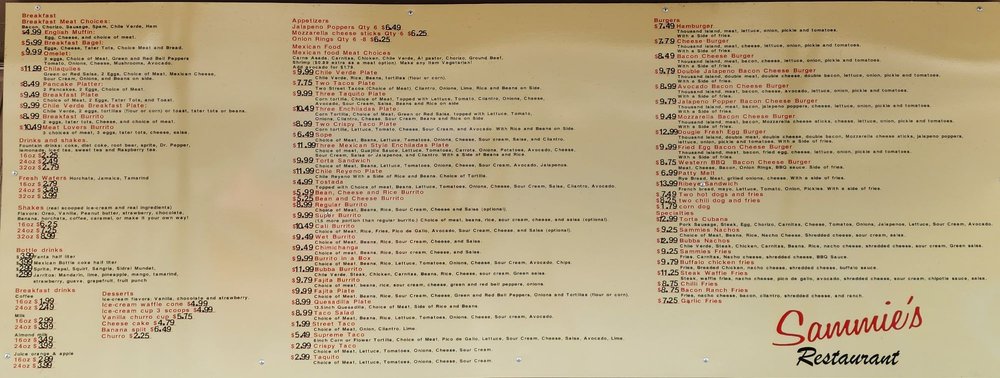 Breakfast
Breakfast Meat Choices:
Bacon, Chorizo, Sausage, Spam, Chile Verde, Ham
$4.99 English Muffin:
Egg, Cheese, and choice of meat.
$5.99 Breakfast Bagel:
Eggs, Cheese, Tater Tots, Choice Meat and Bread.
$9.99 Omelet:
3 eggs, Choice of Meat, Green and Red Bell Peppers
Tomato, Onions, Cheese, Mushrooms, Avocado.
$11.99 Chilaquiles
Green or Red Salsa, 2 Eggs, Choice of Meat, Mexican Cheese,
Sour Cream, Onions, and Beans on side.
$8.49 Pancake Platter
2 Pancakes, 2 Eggs, Choice of Meat.
$9.49 Breakfast Plate
Choice of Meat, 2 Eggs, Tater Tots, and Toast.
$9.99 Chile Verde Breakfast Plate:
Chile Verde, 2 eggs, tortillas (flour or corn) or toast, tater tots or beans.
$8.99 Breakfast Burrito
2 eggs, tater tots, Cheese, and choice of meat.
$10.49 Meat Lovers Burrito
3 choices of meat, 2 eggs, tater tots, cheese, salsa
Drinks and shakes
Fountain drinks: coke, diet coke, root beer, sprite, Dr. Pepper,
lemonade, iced tea, sweet tea and Raspberry tea.
16oz $2.25
24oz $2.49
32oz $2.79
Fresh Waters Horchata, Jamaica, Tamarind
16oz $2.79
24oz $3.49
32oz $3.99
Shakes (real scooped ice-cream and real ingredients)
Flavors: Oreo, Vanilla, Peanut butter, strawberry, chocolate,
Banana, horchata, coffee, caramel, or make it your own way!
16oz $6.25
24oz $7.25
32oz $8.99
Bottle drinks
Fanta half liter
Mexican Bottle coke half liter
Sprite, Pepsi, Squirt, Sangria, Sidral Mundet,
Jarritos: Mandarin, lime, pineapple, mango, tamarind,
strawberry, guava, grapefruit, fruit punch
Breakfast drinks
Coffee
16oz $1.99
24oz $2.49
Milk
16oz $2.99
24oz $3.99
Almond milk
16oz $3.49
24oz $3.99
Juice orange & apple
16oz $2.99
24oz $3.99
Desserts
Ice-cream flavors: Vanilla, chocolate and strawberry.
Ice-cream waffle cone $4.99
Ice-cream cup 3 scoops $4.99
Vanilla churro cup $5.75
Cheese cake $4.79
Banana split $6.49
Churro $2.25
Appetizers
Jalapeno Poppers Qty 6 $6.49
Mozzarella cheese sticks Qty 6 $6.25
Onion Rings Qty 6-8 $6.25
Mexican Food
Mexican food Meat Choices
Carne Asada, Carnitas, Chicken, Chile Verde, Al pastor, Chorizo, Ground Beef,
Shrimp ($0.89 extra as a meat option) Make any item Wet
Add avocado for $1.79
$9.99 Chile Verde Plate
Chile Verde, Rice, Beans, tortillas (flour or corn).
$7.75 Two Tacos Plate
Two Street Tacos (Choice of Meat), Cilantro, Onions, Lime, Rice and Beans on Side.
$9.99 Three Taquito Plate
Corn tortilla, Choice of Meat, Topped with Lettuce, Tomato, Cilantro, Onions, Cheese,
Avocado, Sour Cream, Salsa, Beans and Rice on side
$10.49 Three Enchiladas Plate
Corn Tortilla, Choice of Meat, Green or Red Salsa, topped with Lettuce, Tomato,
Onions, Cilantro, Cheese, Sour Cream, Beans and Rice on Side
$8.99 Two Crispy Taco Plate
Corn tortilla, Lettuce, Tomato, Cheese, Sour Cream, and Avocado. With Rice and Beans on Side
$6.49 Sope
Choice of Meat, Beans, Lettuce, Tomatoes, Onions, Cheese, Sour cream, Salsa, and Cilantro.
$11.99 Three Mexican Style Enchiladas Plate
Choice of meat, Guajillo Sauce, Lettuce, Tomatoes, Carrots, Onions, Potatoes, Avocado, Cheese,
Sour Cream, Salsa or Jalapeno, and Cilantro. With a Side of Beans and Rice
$9.99 Torta Sandwich
Choice of Meat, Beans, Lettuce, Tomatoes, Onions, Cheese, Sour Cream, Avocado, Jalapenos.
$11.99 Chile Reyeno Plate
Chile Reyeno With a Side of Rice and Beans, Choice of Tortilla.
$4.99 Tostada
Topped with Choice of meat, Beans, Lettuce, Tomatoes, Onions, Cheese, Sour Cream, Salsa, Cilantro, Avocado.
$5.99 Bean, Cheese and Rice Burrito
$5.25 Bean and Cheese Burrito
$8.99 Regular Burrito
Choice of Meat, Beans, Rice, Sour Cream, Cheese, and Salsa (optional).
$9.99 Super Burrito
(1.5 more portion than regular burrito.) Choice of meat, beans, rice, sour cream, cheese, and salsa (optional).
$10.49 Cali Burrito
Choice of Meat, Rice, Fries, Pico de Gallo, Avocado, Sour Cream, Cheese, and Salsa (optional).
$9.49 Wet Burrito
Choice of Meat, Beans, Rice, Sour Cream, Cheese, and Salsa.
$9.49 Chimichanga
Choice of meat, Beans, Rice, Sour Cream, Cheese, and Salsa.
$9.99 Burrito in a Box
Choice of Meat, Beans, Rice, Cheese, Lettuce, Tomatoes, Onions, Sour Cream, Chips.
$11.99 Bubba Burrito
Chile Verde, Steak, Chicken, Carnitas, Beans, Rice, Cheese, sour cream, Green salsa
$9.79 Fajita Burrito
Choice of meat, beans, rice, sour cream, cheese, green and red bell peppers, onions.
$9.99 Fajita Plate
Choice of Meat, Beans, Rice, Sour Cream, Cheese, Green and Red Bell Peppers, Onions and Tortillas (flour or corn).
$8.99 Quesadilla Plate
12.5inch Quesadilla, Choice of Meat, Side of Rice and Beans
$8.99 Taco Salad
Choice of Meat, Beans, Lettuce, Tomatoes, Onions, Cheese, Sour Cream.
$1.99 Street Taco
Choice of Meat, Onion, Cilantro, Lime.
$5.49 Supreme Taco
6inch Corn or Flower Tortilla, Choice of Meat, Pico de Gallo, Lettuce, Sour Cream, Cheese, Salsa, Avocado, Lime.
$2.99 Crispy Taco
Choice of Meat, Lettuce, Tomatoes, Onions, Cheese, Sour Cream.
$2.99 Taquito
Choice of Meat, Lettuce, Tomatoes, Onions, Cheese, Sour Cream.
Burgers
$7.49 Hamburger
Thousand island, meat, lettuce, onion, pickle and tomatoes.
With a Side of Fries.
$7.79 Cheese Burger
Thousand island, meat, cheese, lettuce, onion, pickle and tomatoes.
With a Side of fries.
$8.49 Bacon Cheese Burger
Thousand island, meat, bacon, cheese, lettuce, onion, pickle and tomatoes.
With a side of fries.
$9.79 Double Jalapeno Bacon Burger
Thousand island, double meat, double cheese, double bacon, lettuce, onion, pickle and tomatoes.
With a side of fries.
$8.99 Avocado Bacon Cheese Burger
Thousand island, meat, bacon, cheese, avocado, lettuce, onion, pickle and tomatoes.
With a side of fries.
$9.79 Jalapeno Popper Bacon Burger
Thousand island, meat, bacon, jalapeno poppers, cheese, lettuce, onion, pickle and tomatoes.
With a side of fries.
$9.49 Mozzarella Bacon Cheese Burger
Thousand island, meat, bacon, Mozzarella cheese sticks, cheese, lettuce, onion, pickle and tomatoes.
With a Side of fries.
$12.99 Dougie Fresh Egg Burger
Thousand island, double meat, double cheese, double bacon, Mozzarella cheese sticks, jalapeno poppers,
lettuce, onion, pickle and tomatoes. With a side of fries.
$9.99 Fried Egg Bacon Cheese Burger
Thousand island, meat, bacon, fried egg, cheese, lettuce, onion, pickle and tomatoes.
With a side of fries.
$8.75 Western BBQ Bacon Cheese Burger
Meat, Cheese, Bacon, Onion Rings, BBQ sauce. Side of fries.
$6.99 Patty Melt
Rye Bread, Meat, grilled onions, cheese, With a side of fries.
$13.99 Ribeye Sandwich
French bread, meat, Lettuce, Tomato, Onion, Pickles. With a side of fries.
$7.49 Two hot dogs and fries
$8.25 two chili dog and fries
$1.79 corn dog
Specialties
$12.99 Torta Cubana
Ham, Sausage, Steak, Egg, Chorizo, Carnitas, Beans, Lettuce, Tomatoes, Onions, Cheese, Sour Cream, Avocado.
$9.25 Sammies Nachos
Choice of Meat, Beans, Rice, Nacho Cheese, Shredded cheese, sour cream, salsa.
$12.99 Bubba Nachos
Chile Verde, Steak, Chicken, Carnitas, Beans, Rice, nacho cheese, shredded cheese, sour cream, Green salsa.
$9.25 Sammies Fries
Fries, Carnitas, Nacho cheese, shredded cheese, BBQ Sauce.
$9.79 Buffalo chicken fries
Fries, Breaded Chicken, nacho cheese, shredded cheese, buffalo sauce.
$11.25 Steak Waffle Fries
Steak, waffle fries, nacho cheese, pico de gallo, avocado, shredded cheese, sour cream, chipotle sauce, salsa.
$8.75 Chilli Fries
$8.75 Bacon Ranch Fries
Fries, nacho cheese, bacon, cilantro, shredded cheese, and ranch.
$7.25 Garlic Fries
Sammie's
Restaurant